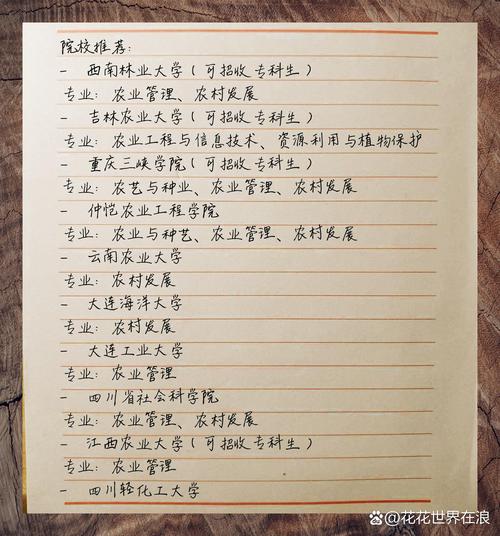 院校推荐:
- 西南林业大学(可招收专科生)
专业: 农业管理、农村发展
- 吉林农业大学(可招收专科生)
专业: 农业工程与信息技术、资源利用与植物保护
- 重庆三峡学院(可招收专科生)
专业: 农艺与种业、农业管理、农村发展
- 仲恺农业工程学院
专业: 农业与种艺、农业管理、农村发展
- 云南农业大学
专业: 农村发展
- 大连海洋大学
专业: 农村发展
- 大连工业大学
专业: 农业管理
- 四川省社会科学院
专业: 农业管理、农村发展
- 江西农业大学(可招收专科生)
专业: 农业管理
- 四川轻化工大学
@花花世界在浪